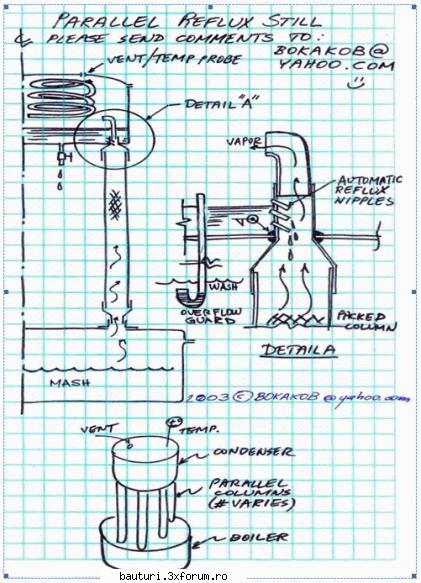 PARALLEL REFLUX STILL
PLEASE SEND COMMENTS TO:
BOKAKOB@
YAHOO.COM
VENT/TEMP PROBE
DETAIL "A"
VAPOR
AUTOMATIC
REFLUX
NIPPLES
WASH
OVERFLOW
GUARD
PACKED
COLUMN
DETAIL A
MASH
2003 © BOKAKOB @yahoo.com
VENT
TEMP.
CONDENSER
PARALLEL
COLUMNS
(# VARIES)
BOILER
bauturi.3xforum.ro